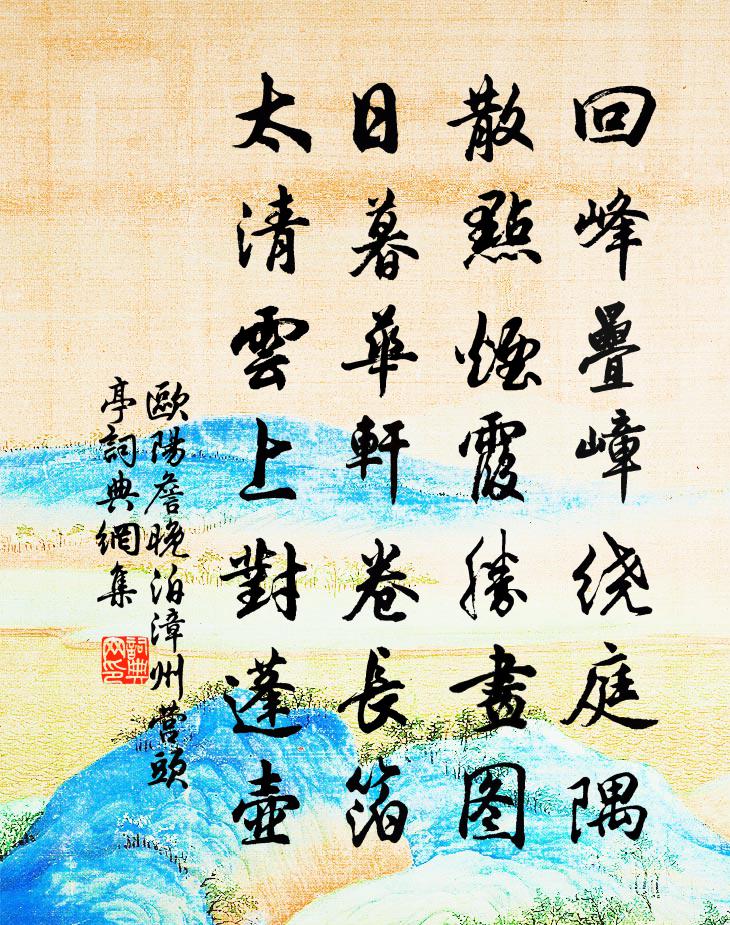 回峰疊嶂绕庭隅
散點煙霞勝畫图
日暮華軒卷長箔
太清雲上對蓬壺
歐陽詹晚泊漳州營頭
亭詞典網集
詞典
网印